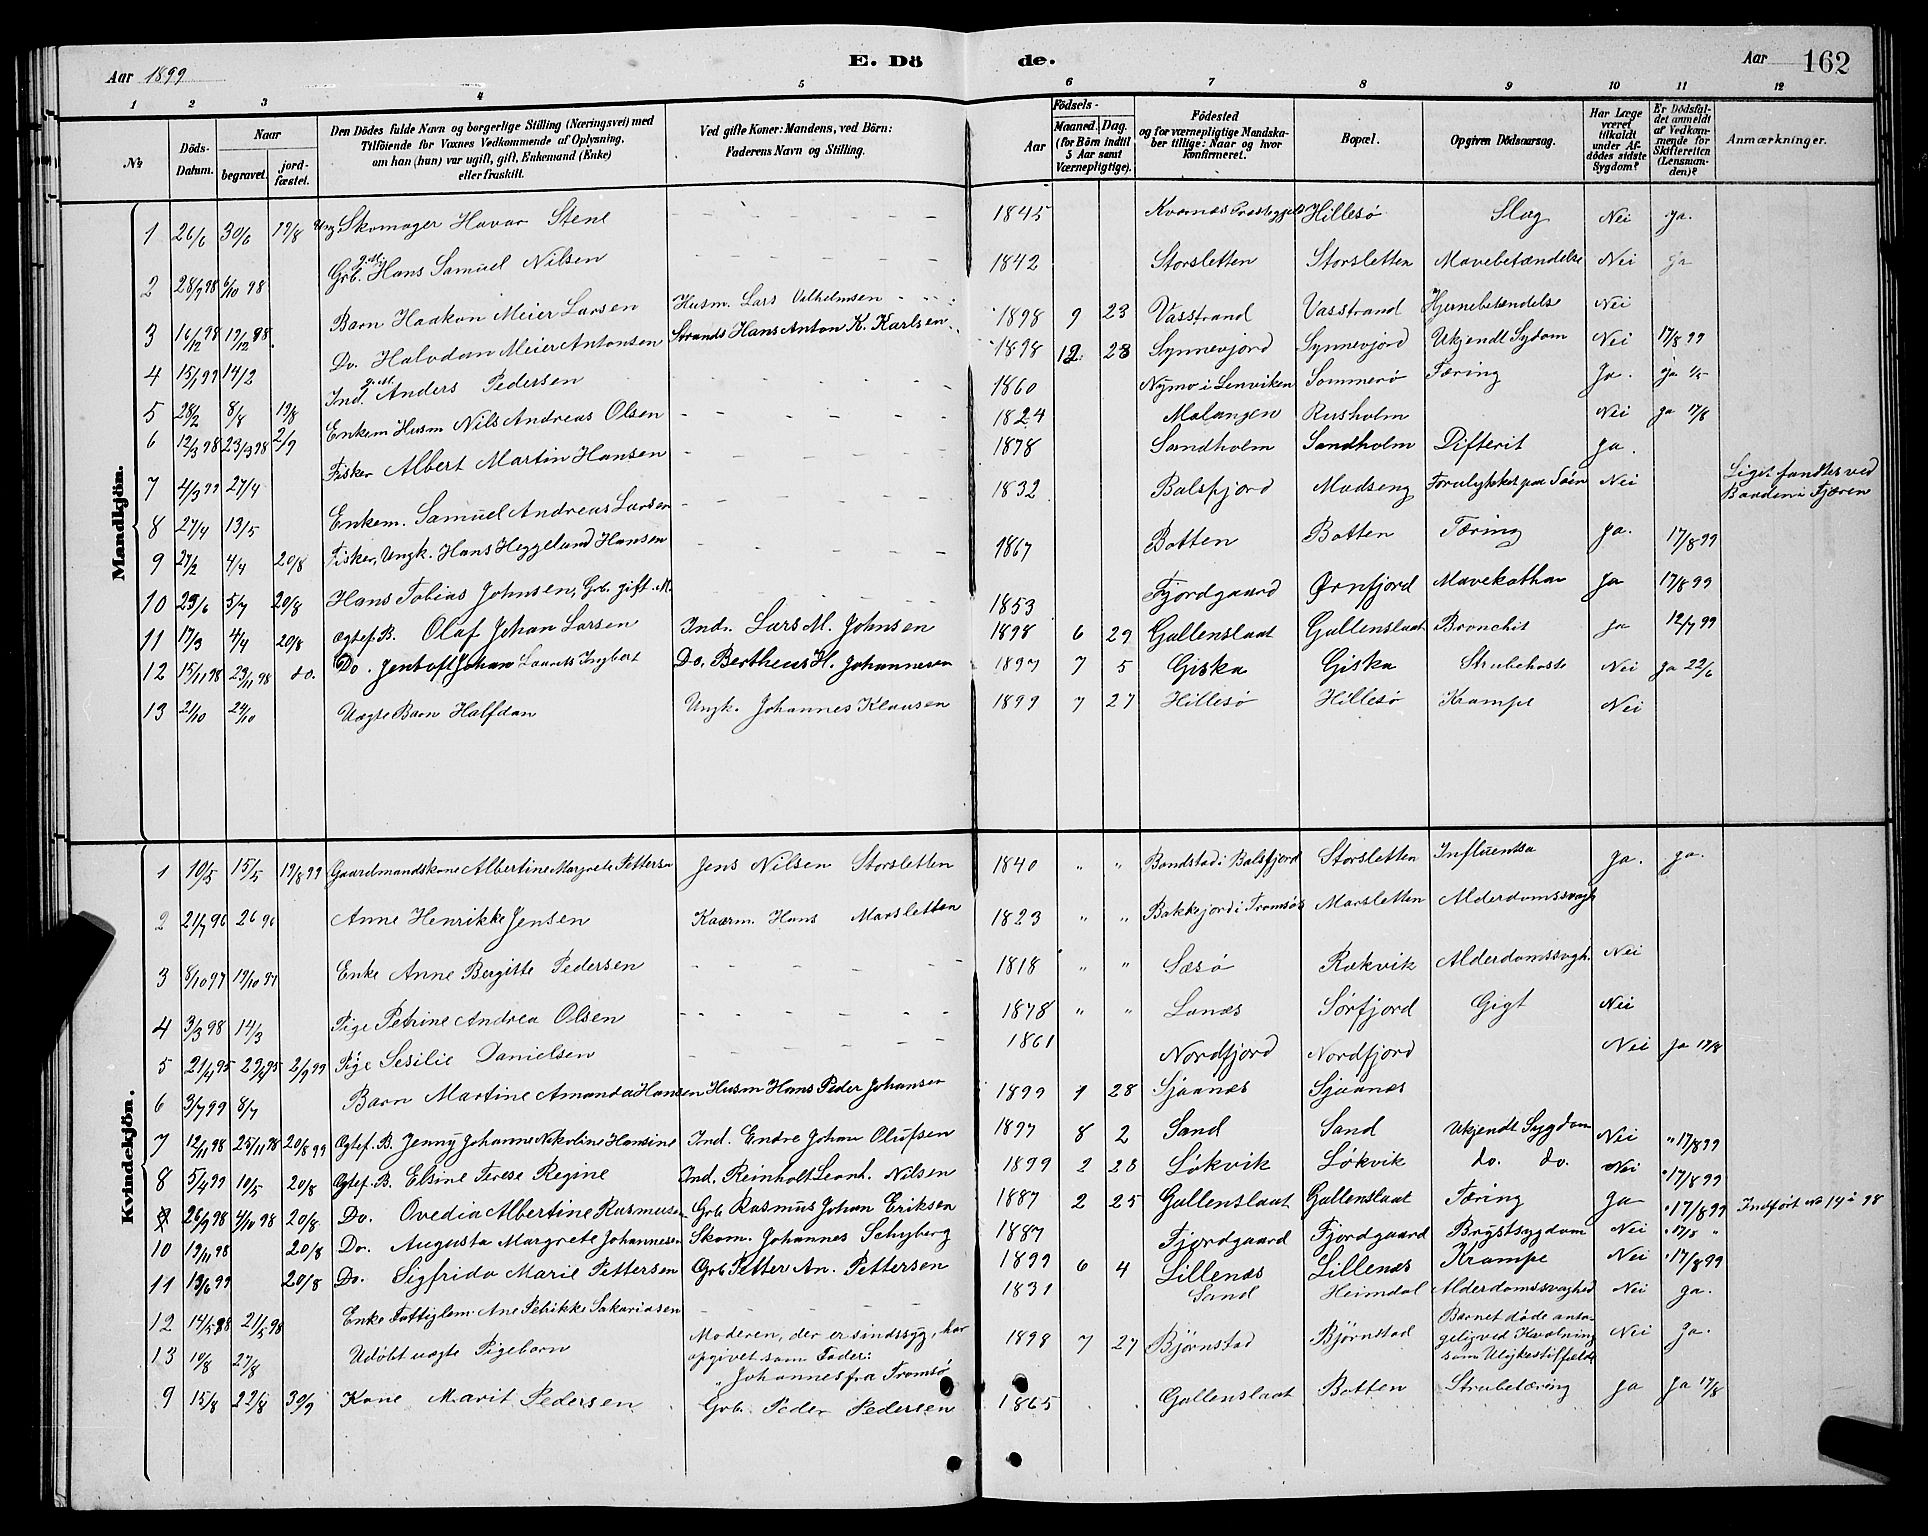 Aar 1899
E. Dö
de.
Aar
162
1 2 3 4 5 6 7 8 9 10 11 12
No
Döds-Datum.
Naar
begravet.
jord-fæstet.
Den Dödes fulde Navn og borgerlige Stilling (Næringsvei) med
Tilföiende for Voxnes Vedkommende af Oplysning,
om han (hun) var ugift, gift, Enkemand (Enke)
eller fraskilt.
Ved gifte Koner: Mandens, ved Börn:
Faderens Navn og Stilling.
Födsels-
Aar
Maaned. Dag.
(for Börn indtil
5 Aar samt
Værnepligtige).
Födested
og for værnepligtige Mandska-
ber tillige: Naar og hvor
konfirmeret.
Bopæl.
Opgiven Dödsaarsag.
Har Læge
været
tilkaldt
under Af-
dödes sidste
Sygdom?
Er Dödsfal-
det anmeldt
af Vedkom-
mende for
Skifteretten
(Lensman-
den)?
Anmærkninger.
Mandkjön.
1 26/6 30/6 19/8 Ung Skomager Havar Stene 1845 Hillesö Slag Nei Ja.
2 28/9 98 6/10 98 Grb. g.M. Hans Samuel Nilsen 1842 Storsletten Storsletten Mavebetændelse Nei Ja
3 16/12 98 19/12 98. Barn Haakon Meier Larsen Husm. Lars Vilhelmsen 1898 9 23 Vasstrand Vasstrand Hjernebetændelse Nei
4 15/1 99 14/2 Do. Halvdan Meier Antonsen Strands. Hans Anton K. Karlsen 1898 12 28 Synnevjord Synnevjord Ukjendt Sygdom Nei 17/8 99
5 28/2 8/8 19/8 Ind. g.M. Anders Pedersen 1860 Nymo i Lenviken Sommerö Tæring Ja. Ja 1/5
6 12/3 98 23/3 98 2/9 Enkem Husm Nils Andreas Olsen 1824 Malangen Rusholm Nei Ja 17/8
7 4/3 99 27/4 Fisker Albert Martin Hansen 1878 Sandholm Sandholm Difterit Ja.
8 27/4 13/5 Enkem. Samuel Andreas Larsen 1832 Balsfjord Madseng Forulykket paa Söen Nei Liget fandtes ved Baaden i Fjæren
9 27/2 4/4 20/8 Fisker, Ungk. Hans Heggelund Hansen 1867 Botten Botten Tæring Ja. 17/8 99
10 23/6 5/7 20/8 Hans Tobias Johnsen, Grb. gift. M. 1853 Fjordgaard Ørnfjord Mavekathar Ja 17/8 99
11 17/3 4/4 20/8 Ogtef. B. Olaf Johan Larsen Indr. Lars M. Johnsen 1898 6 29 Gallenslaat Gallenslaat Bronchit Ja 12/7 99
12 15/11 98 23/11 98 do. Do. Jentoft Johan Laurits Ingbert Do. Bertheus H. Johannesen 1897 7 5 Giska Giska Strubehoste Nei Ja 22/6
13 21/10 24/10 Uægte Barn Halfdan Ungk. Johannes Klausen 1899 7 27 Hillesö Hillesö Krampe Nei
Kvindekjön.
1 10/5 15/5 19/8 99 Gaardmandskone Albertine Margrete Pettersen Jens Nilsen Storsletten 1840 " " Bandstad i Balsfjord Storsletten Influentsa Ja. Ja.
2 21/7 96 26 96 Anne Henrikke Jensen Kaarm. Hans Marsletten 1823 " " Bakkejord i Tromsös Marsletten Alderdomssvagh
3 8/10 97 19/10 97 Enke Anne Bergitte Pedersen 1818 " " Sasö Rækvik Alderdomssvagh. Nei
4 3/3 98 14/3 Pige Petrine Andrea Olsen 1878 " " Lanæs Sörfjord Gigt Nei
5 21/4 95 29/4 95 2/9 99 Pige Sesilie Danielsen 1861 Nordfjord Nordfjord Nei Ja 17/8
6 3/7 99 8/7 Barn Martine Amanda Hansen Husm Hans Peder Johansen 1899 1 28 Sjaanæs Sjaanæs
7 12/11 98 25/11 98 20/8 99 Ogtef. B. Jenny Johanne Nikoline Hansine Ind. Endre Johan Olufsen 1897 8 2 Sand Sand Ukjendt Sygdom Nei " 17/8 99
8 5/4 99 10/5 20/8 Ogtef. B. Elsine Terese Regine Ind. Reinholt Leonh. Nilsen 1899 2 28 Lökvik Lökvik do. do. Nei " 17/8 99
9 26/9 98 4/10 98 20/8 Do. Ovedia Albertine Rasmusen Grb Rasmus Johan Eriksen 1887 2 25 Gallenslaat Gallenslaat Tæring Ja " 17/8 99 Indfört No 14 i 98
10 19/11 98 20/8 Do. Augusta Margrete Johannesen Skom. Johannes Schyberg 1887 Fjordgaard Fjordgaard Brystsygdom Nei " 17/8 "
11 13/6 99 20/8 Do. Sigfrida Marie Pettersen Grb Petter An. Pettersen 1899 6 4 Lillenæs Lillenæs Krampe Nei " 17/8 99
12 14/5 98 21/5 98 Enke Fattiglem. Ane Petrikke Sakariasen 1831 Sand Heimdal Alderdomssvaghed Nei Ja.
13 10/8 27/8 Udöbt uægte Pigebarn Moderen, der er sindssyg, har opgivet som Fader: " Johannes fra Tromsö 1898 7 27 Björnstad Björnstad Barnet döde antageligved Kvælning som Ulykkestilfælde Nei Ja.
9 15/8 22/8 30/9 Kone Marit Pedersen Grb. Peder Pedersen 1865 Gallenslaat Botten Strubetæring Ja Ja 17/8